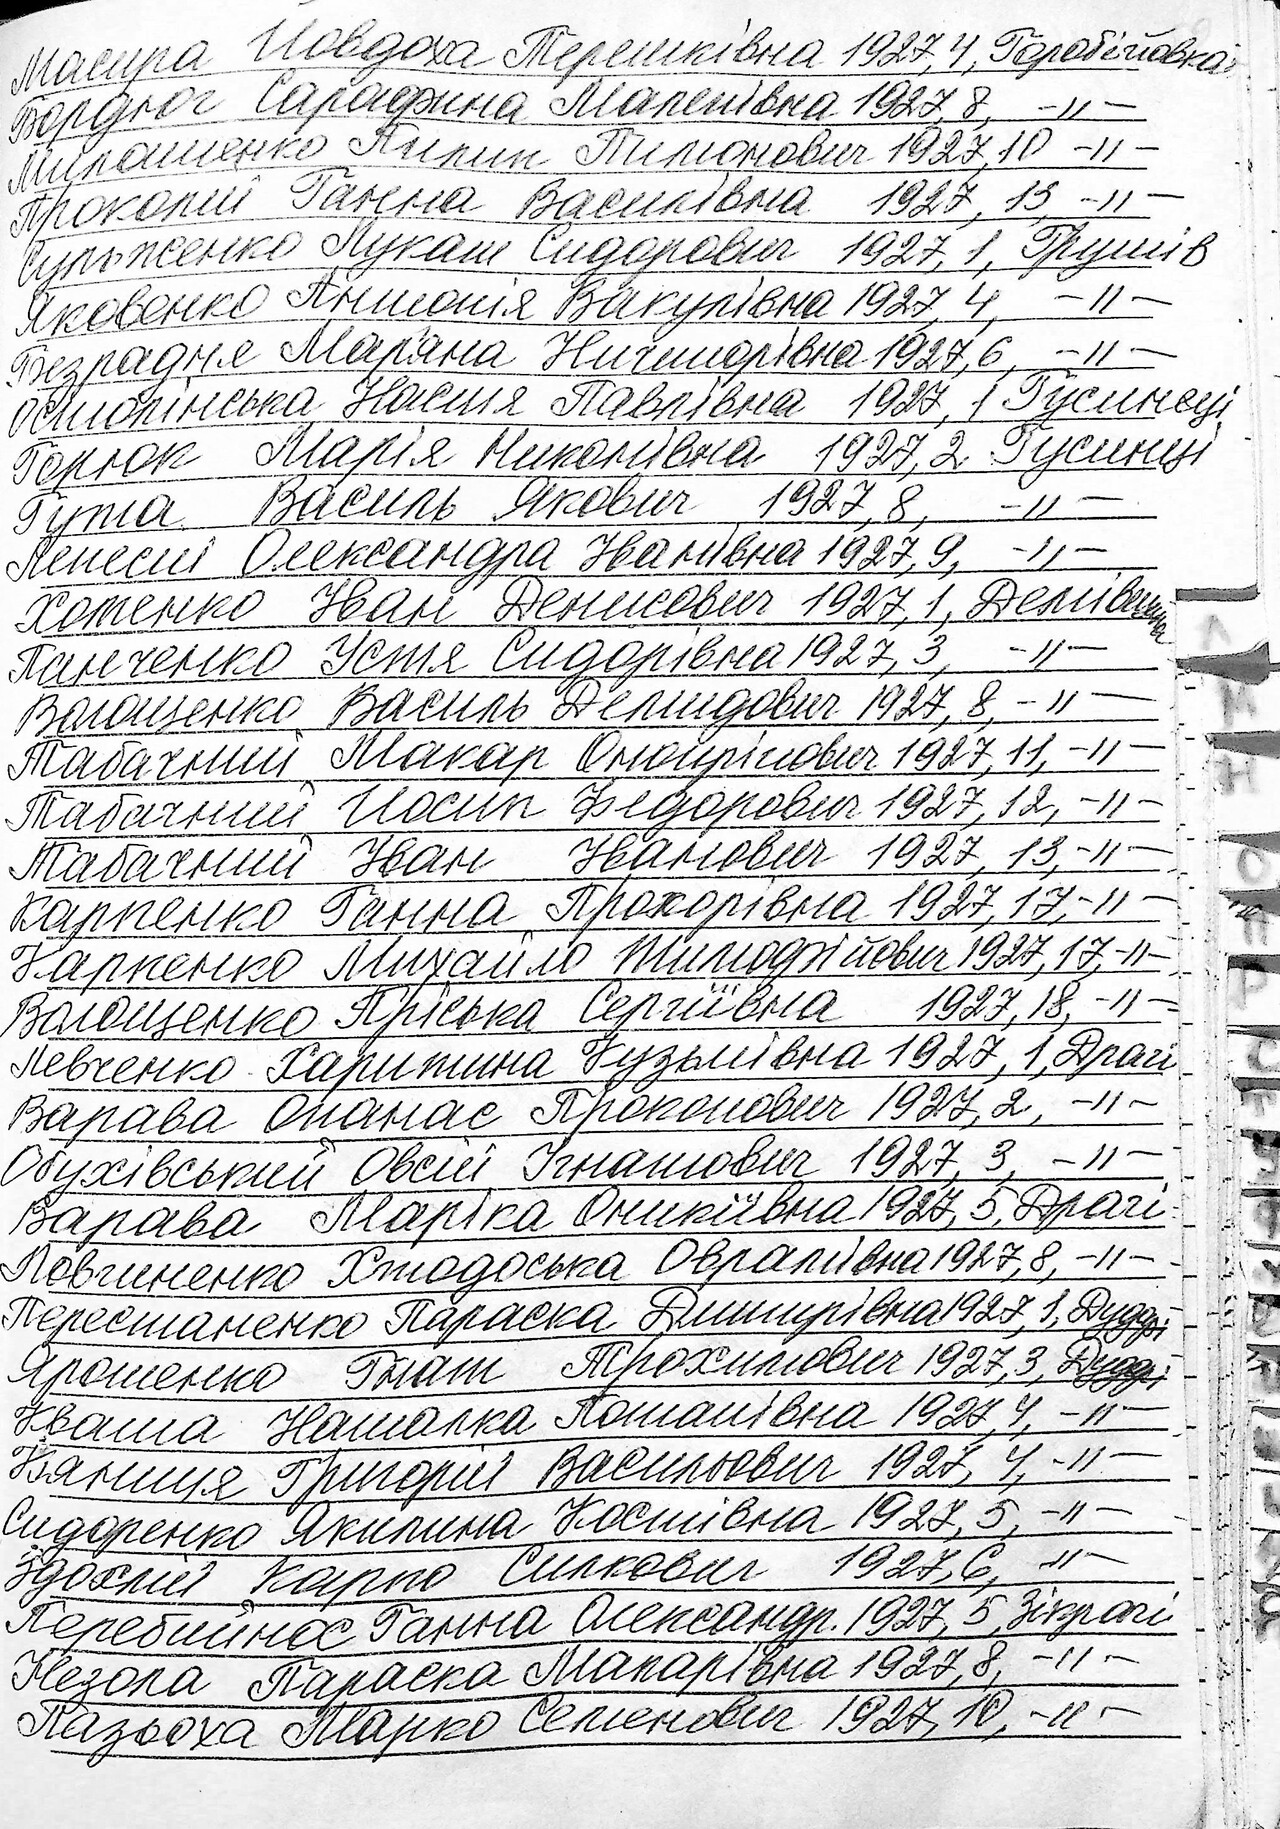 Масира Йовдоха Терешківна 1927, 4, Горобіївка
Бордюг Сарафина Мапеївна 1927, 8, -"-
Мирошенко Пилип Пимонович 1927, 10 -"-
Прокопій Ганна Василівна 1927, 13, -"-
Супрженко Лукаш Сидорович 1927, 1, Грушів
Яковенко Антонія Вакулівна 1927, 4, -"-
Безрадня Мар'яна Ничипорівна 1927, 6, -"-
Осмолінська Настя Павлівна 1927, 1 Гусинсці
Горюк Марія Миколаївна 1927, 2 Гусинці
Гута Василь Якович 1927, 8, -"-
Лепесій Олександра Іванівна 1927, 9, -"-
Хоменко Іван Денисович 1927, 1, Демівщина
Панченко Устя Сидорівна 1927, 3, -"-
Волощенко Василь Демидович 1927, 8, -"-
Табачний Макар Онопрійович 1927, 11, -"-
Табачний Йосип Федорович 1927, 12, -"-
Табачний Іван Іванович 1927, 13, -"-
Карпенко Ганна Прохорівна 1927, 17, -"-
Карпенко Михайло Тимофійович 1927, 17, -"-
Волощенко Пріська Сергіївна 1927, 18, -"-
Левченко Харитина Кузьмівна 1927, 1, Драчі
Варава Опанас Прокопович 1927, 2, -"-
Обухівський Овсій Ігнатович 1927, 3, -"-
Варава Маріка Оникіївна 1927, 5, Драчі
Овраміївна 1927, 8, -"-
Перестаненко Параска Дмитрівна 1927, 1, Дударі
Ярошенко Гнат Трохимович 1927, 3, Дударі
Кваша Наталка Потапівна 1927, 4, -"-
Кяниця Григорій Васильович 1927, 4, -"-
Сидоренко Якилина Костівна 1927, 5, -"-
Здохлій Карпо Силкович 1927, 6, "-
Перебийнос Ганна Олександр. 1927, 5, Зікрачі
Незола Параска Макарівна 1927, 8, -"-
Казьоха Марко Семенович 1927, 10, -"-